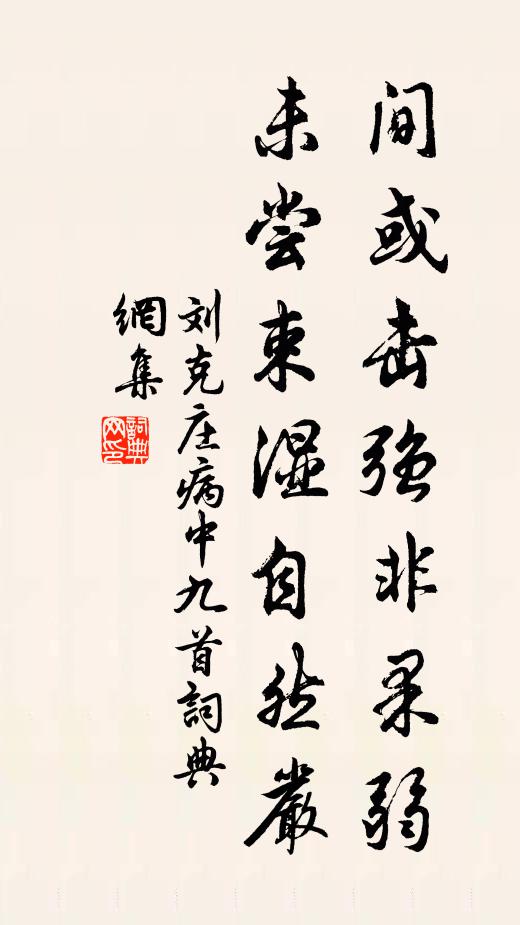 间或击强非果弱
未尝束湿自然嚴
刘克庄病中九首詞典
網集
詞典
网印